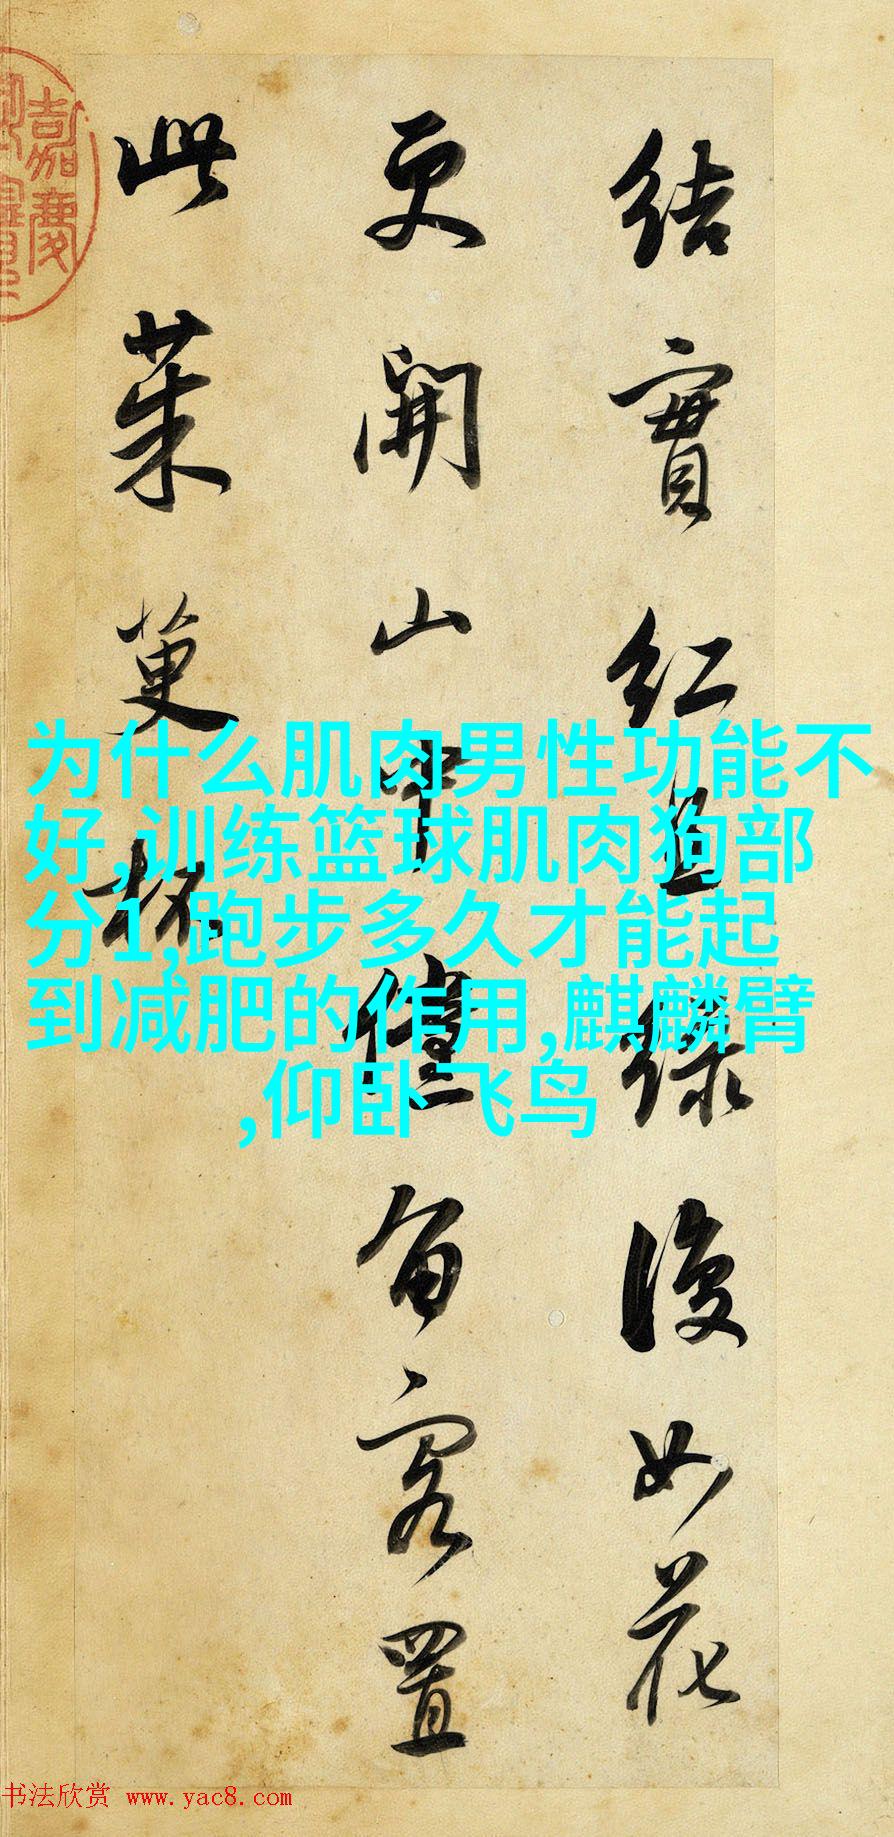 結實紅且綠復如花
更開山中儻留客置
此茱萸杯
嘉慶
为什么肌肉男性功能不
好,训练篮球肌肉狗部
分1,跑步多久才能起
到减肥的作用,麒麟臂
,仰卧飞鸟
书法欣赏 www.yac8.com